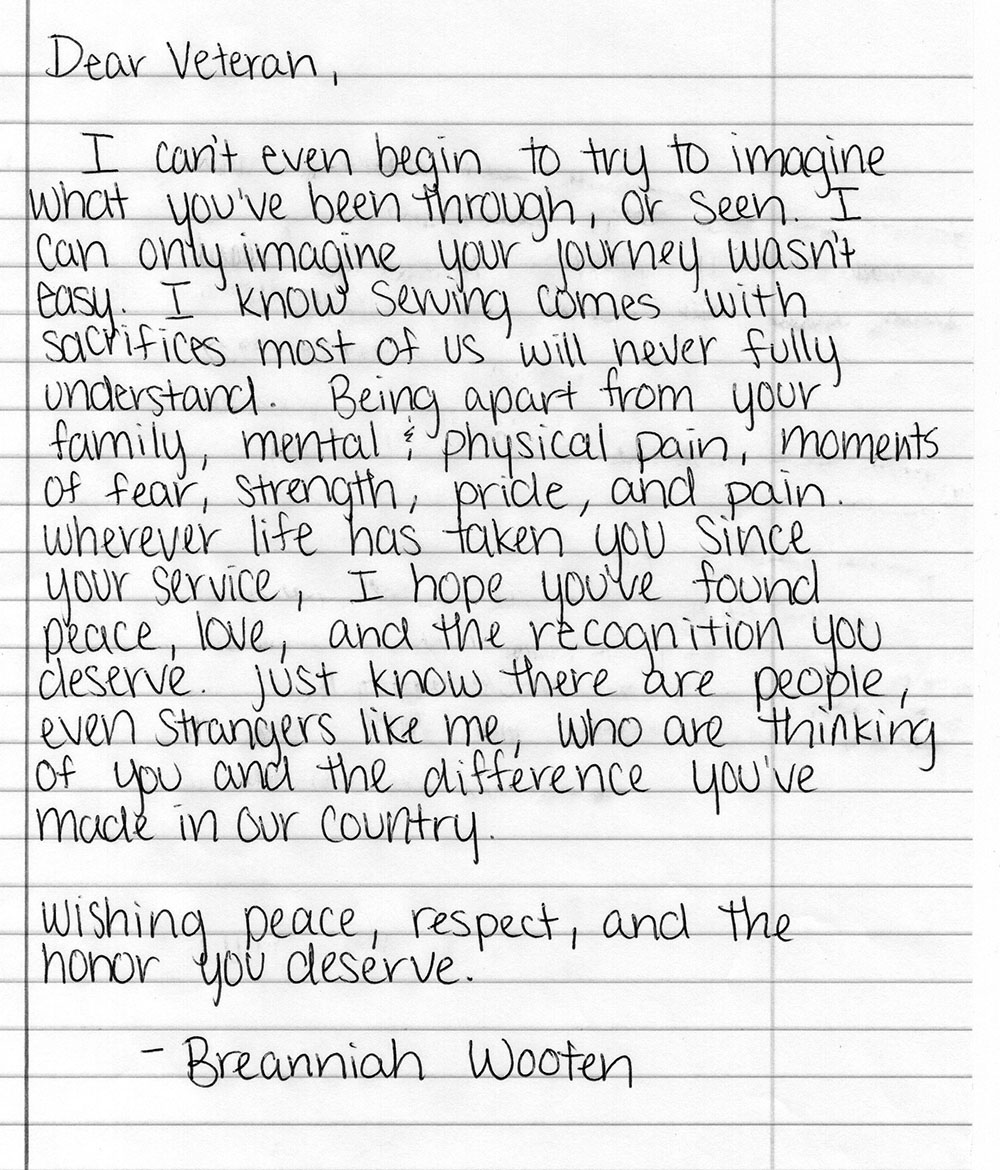 Dear Veteran,
I can't even begin to try to imagine
what you've been through, or seen. I
can only imagine your journey wasn't
easy. I know serving comes with
sacrifices most of us will never fully
understand. Being apart from your
family, mental & physical pain, moments
of fear, strength, pride, and pain.
wherever life has taken you since
your service, I hope you've found
peace, love, and the recognition you
deserve. Just know there are people,
even strangers like me, who are thinking
of you and the difference you've
made in our country.
Wishing peace, respect, and the
honor you deserve.
- Breanniah Wooten